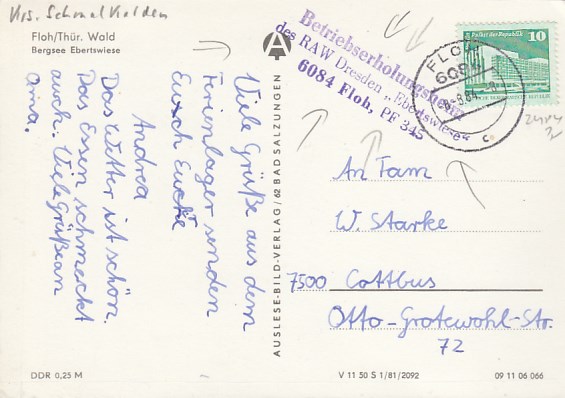 Krs. Schmalkalden
Floh/Thür. Wald
Bergsee Ebertswiese
Viele Grüße aus dem
Ferienlager senden
Euch Eucke
Andrea
Das Wetter ist schön.
Das Essen schmeckt
auch. Viele Grüße an
Oma.
AUSLESE-BILD-VERLAG/62 BAD SALZUNGEN
A
Betriebserholungsheim
des RAW Dresden „Ebertswiese"
6084 Floh, PF 345
10
Palast der Republik
FLOH
6084
c
An Fam
W. Starke
7500 Cottbus
Otto-Grotewohl-Str.
72
DDR 0,25 M
V 11 50 S 1/81/2092
09 11 06 066